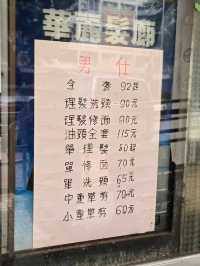 華麗髮廊
男仕
全套 92起
理髮洗頭 - 90元
理髮修面 - 90元
油頭全套 115元
單理髮 80起
單修面 70元
單洗頭 65元
中童單剪 70元
小童單剪 60元